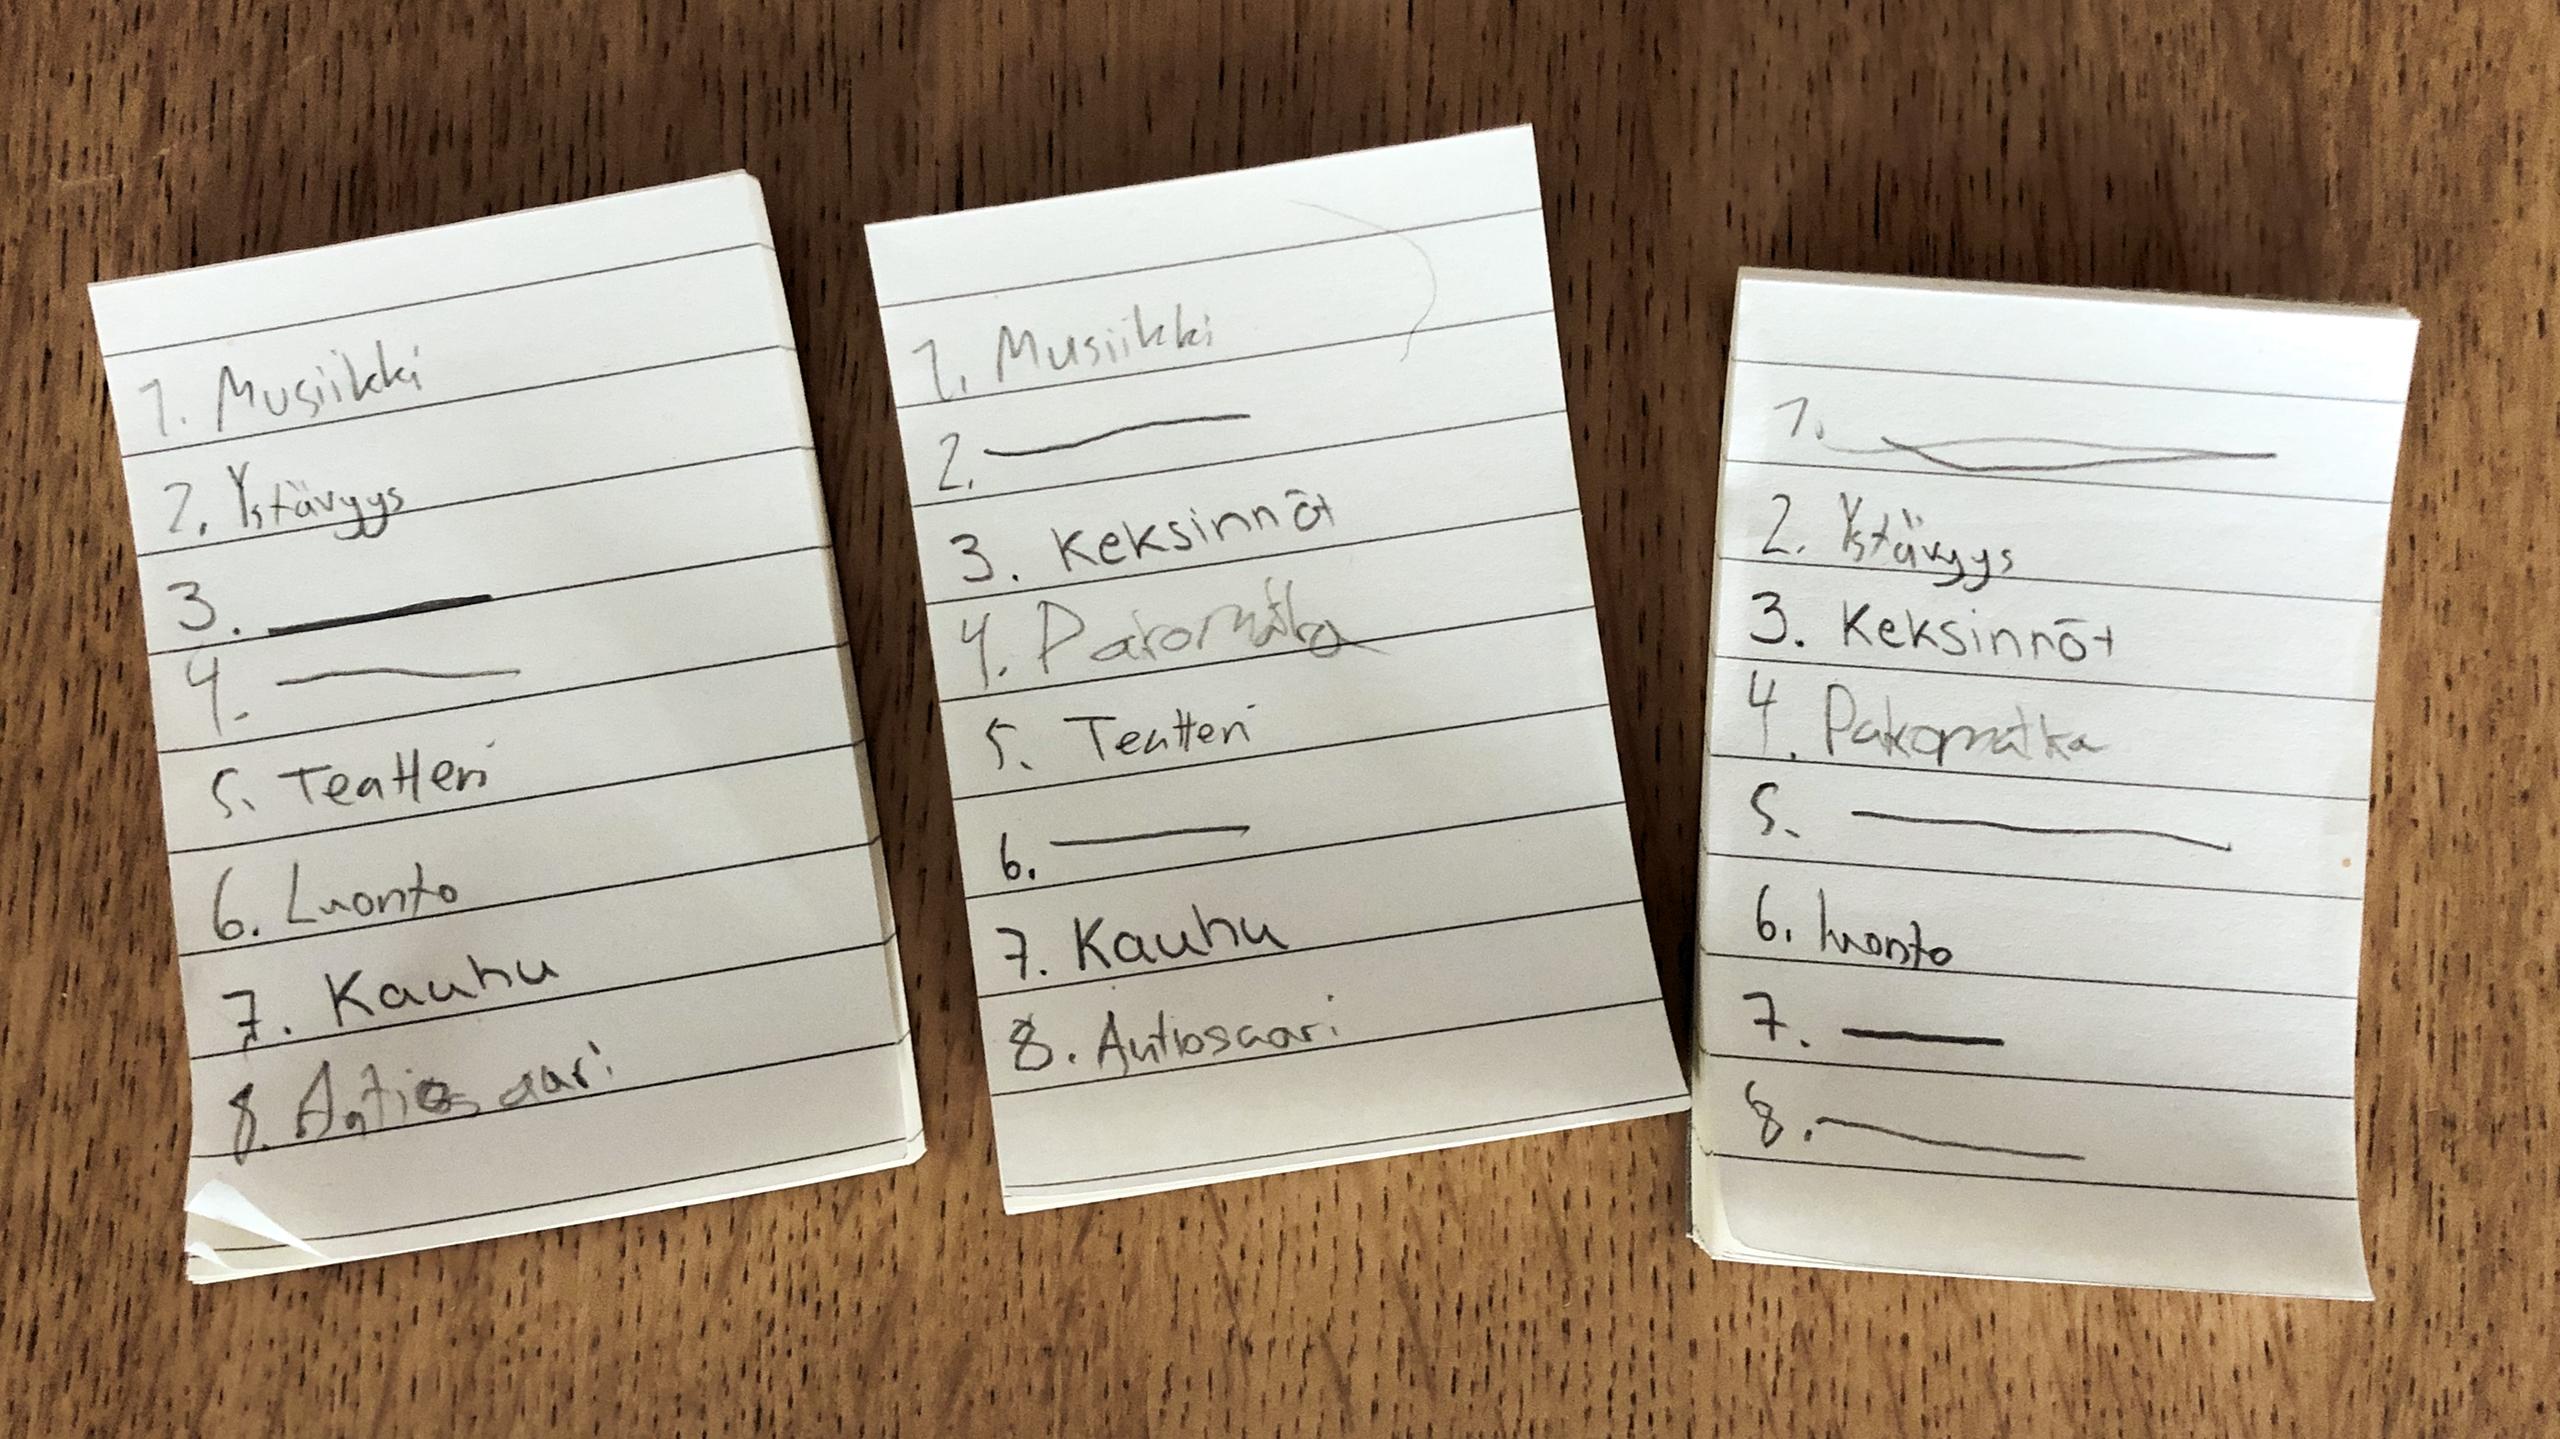 1. Musiikki
2. Ystävyys
3.
4.
5. Teatteri
6. Luonto
7. Kauhu
8. Autiosaari
1. Musiikki
2.
3. Keksinnöt
4. Pakomatka
5. Teatteri
6.
7. Kauhu
8. Autiosaari
1.
2. Ystävyys
3. Keksinnöt
4. Pakomatka
5.
6. luonto
7.
8.